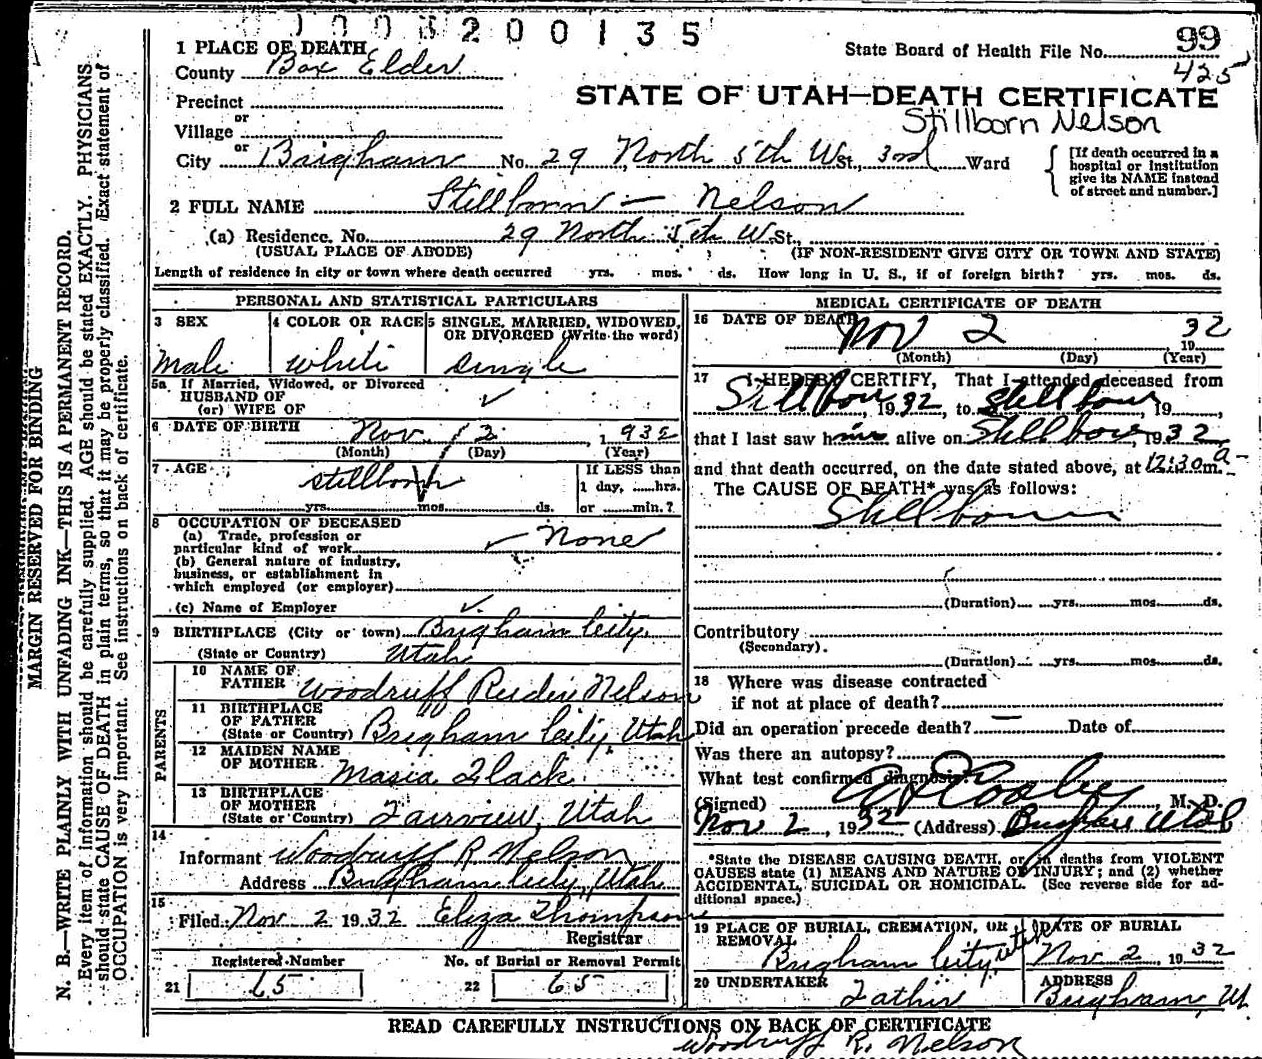 200135
1 PLACE OF DEATH
State Board of Health File No. 99
County Box Elder
425
Precinct
STATE OF UTAH—DEATH CERTIFICATE
or
Village
Stillborn Nelson
or
City Brigham No. 29 North 5th W St., 3rd Ward
[If death occurred in a
hospital or institution
give its NAME instead
of street and number.]
2 FULL NAME Stillborn — Nelson
(a) Residence. No. 29 North 5th W. St.,
(USUAL PLACE OF ABODE) (IF NON-RESIDENT GIVE CITY OR TOWN AND STATE)
Length of residence in city or town where death occurred yrs. mos. ds. How long in U. S., if of foreign birth? yrs. mos. ds.
PERSONAL AND STATISTICAL PARTICULARS
3 SEX 4 COLOR OR RACE 5 SINGLE, MARRIED, WIDOWED,
OR DIVORCED (Write the word)
Male white single
5a If Married, Widowed, or Divorced
HUSBAND OF
(or) WIFE OF
6 DATE OF BIRTH Nov. 2, 1932
(Month) (Day) (Year)
7 AGE stillborn
If LESS than
1 day, hrs.
yrs. mos. ds. or min.?
8 OCCUPATION OF DECEASED
(a) Trade, profession or
particular kind of work None
(b) General nature of industry,
business, or establishment in
which employed (or employer)
(c) Name of Employer
9 BIRTHPLACE (City or town) Brigham City,
(State or Country) Utah
PARENTS
10 NAME OF
FATHER Woodruff Nelson
11 BIRTHPLACE
OF FATHER
(State or Country) Brigham City, Utah
12 MAIDEN NAME
OF MOTHER Black
13 BIRTHPLACE
OF MOTHER
(State or Country) Fairview, Utah
14
Informant Woodruff R Nelson
Address Brigham City, Utah
15
Filed Nov 2 1932 Eliza Thompson
Registrar
Registered Number No. of Burial or Removal Permit
21 65 22 65
MEDICAL CERTIFICATE OF DEATH
16 DATE OF DEATH
Nov 2 1932
(Month) (Day) (Year)
17 I HEREBY CERTIFY, That I attended deceased from
Stillborn 1932, to Stillborn, 19
that I last saw him alive on Stillborn, 1932
and that death occurred, on the date stated above, at 12:30 a m.
The CAUSE OF DEATH* was as follows:
Stillborn
(Duration) yrs. mos. ds.
Contributory
(Secondary).
(Duration) yrs. mos. ds.
18 Where was disease contracted
if not at place of death?
Did an operation precede death? — Date of
Was there an autopsy?
What test confirmed diagnosis?
(Signed) Cooley, M. D.
Nov 2, 1932 (Address) Brigham Utah
*State the DISEASE CAUSING DEATH, or in deaths from VIOLENT
CAUSES state (1) MEANS AND NATURE OF INJURY; and (2) whether
ACCIDENTAL, SUICIDAL OR HOMICIDAL. (See reverse side for ad-
ditional space.)
19 PLACE OF BURIAL, CREMATION, OR
REMOVAL
Brigham City, Utah
DATE OF BURIAL
Nov 2, 1932
20 UNDERTAKER
Father
ADDRESS
Brigham, Ut.
READ CAREFULLY INSTRUCTIONS ON BACK OF CERTIFICATE
Woodruff R. Nelson
MARGIN RESERVED FOR BINDING
N. B.—WRITE PLAINLY WITH UNFADING INK—THIS IS A PERMANENT RECORD.
Every item of information should be carefully supplied. AGE should be stated EXACTLY. PHYSICIANS
should state CAUSE OF DEATH in plain terms, so that it may be properly classified. Exact statement of
OCCUPATION is very important. See instructions on back of certificate.